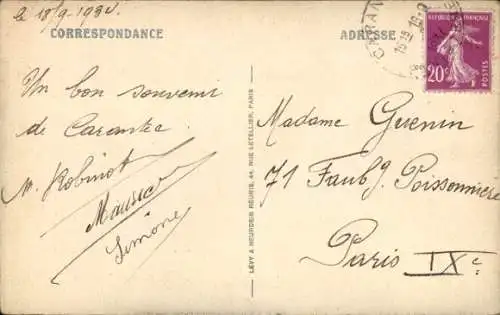 le 18/9. 1934.
CORRESPONDANCE
Un bon souvenir
de Carantec
M. Robinot
Maurice
Simone
LÉVY & NEURDEIN RÉUNIS, 44, RUE LETELLIER, PARIS
ADRESSE
CARAN
REPUBLIQUE FRANÇAISE
20c
POSTES
Madame Guenin
71 Faubg. Poissonnière
Paris IXe